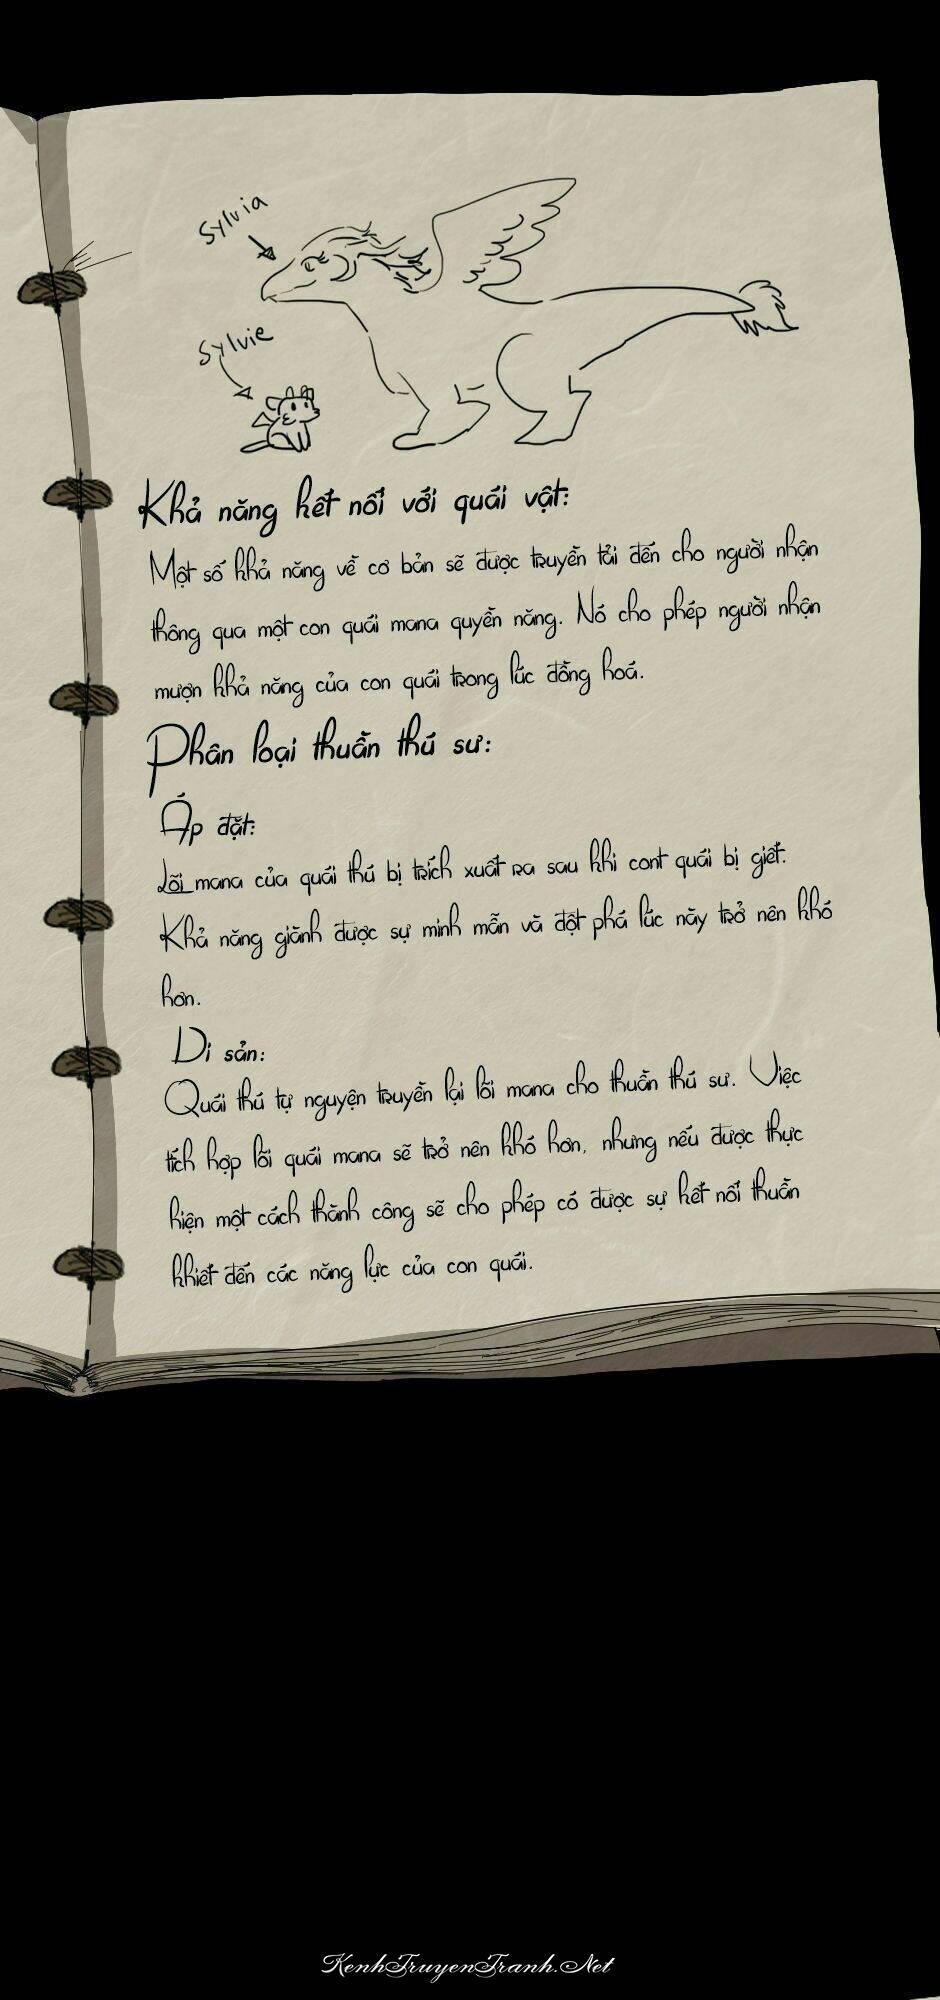 Sylvia
Sylvie
Khả năng kết nối với quái vật:
Một số khả năng về cơ bản sẽ được truyền tải đến cho người nhận
thông qua một con quái mana quyền năng. Nó cho phép người nhận
mượn khả năng của con quái trong lúc đồng hoá.
Phân loại thuần thú sư:
Áp đặt:
Lõi mana của quái thú bị trích xuất ra sau khi cont quái bị giết.
Khả năng giành được sự minh mẫn và đột phá lúc này trở nên khó
hơn.
Di sản:
Quái thú tự nguyện truyền lại lõi mana cho thuần thú sư. Việc
tích hợp lõi quái mana sẽ trở nên khó hơn, nhưng nếu được thực
hiện một cách thành công sẽ cho phép có được sự kết nối thuần
khiết đến các năng lực của con quái.
KenhTruyenTranh.Net